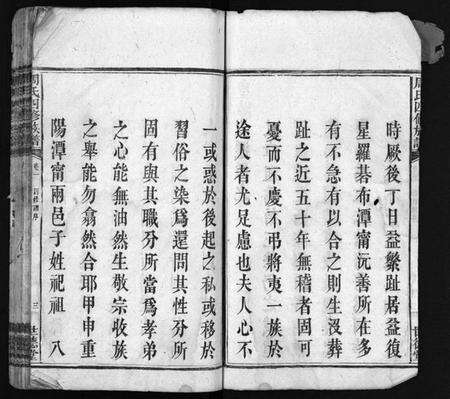 時厥後丁日益繁趾居益復
星羅碁布潭甯沅善所在多
有不急有以合之則生沒葬
趾之近五十年無稽者固可
憂而不慶不弔將夷一族於
途人者尤足慮也夫人心不
一或惑於後起之私或移於
習俗之染為還問其性分所
固有與其職分所當為孝弟
之心能無油然生敬宗收族
之舉能勿翕然合耶甲申重
陽潭甯兩邑子姓祀祖 八
周氏四修族譜
卷一
三